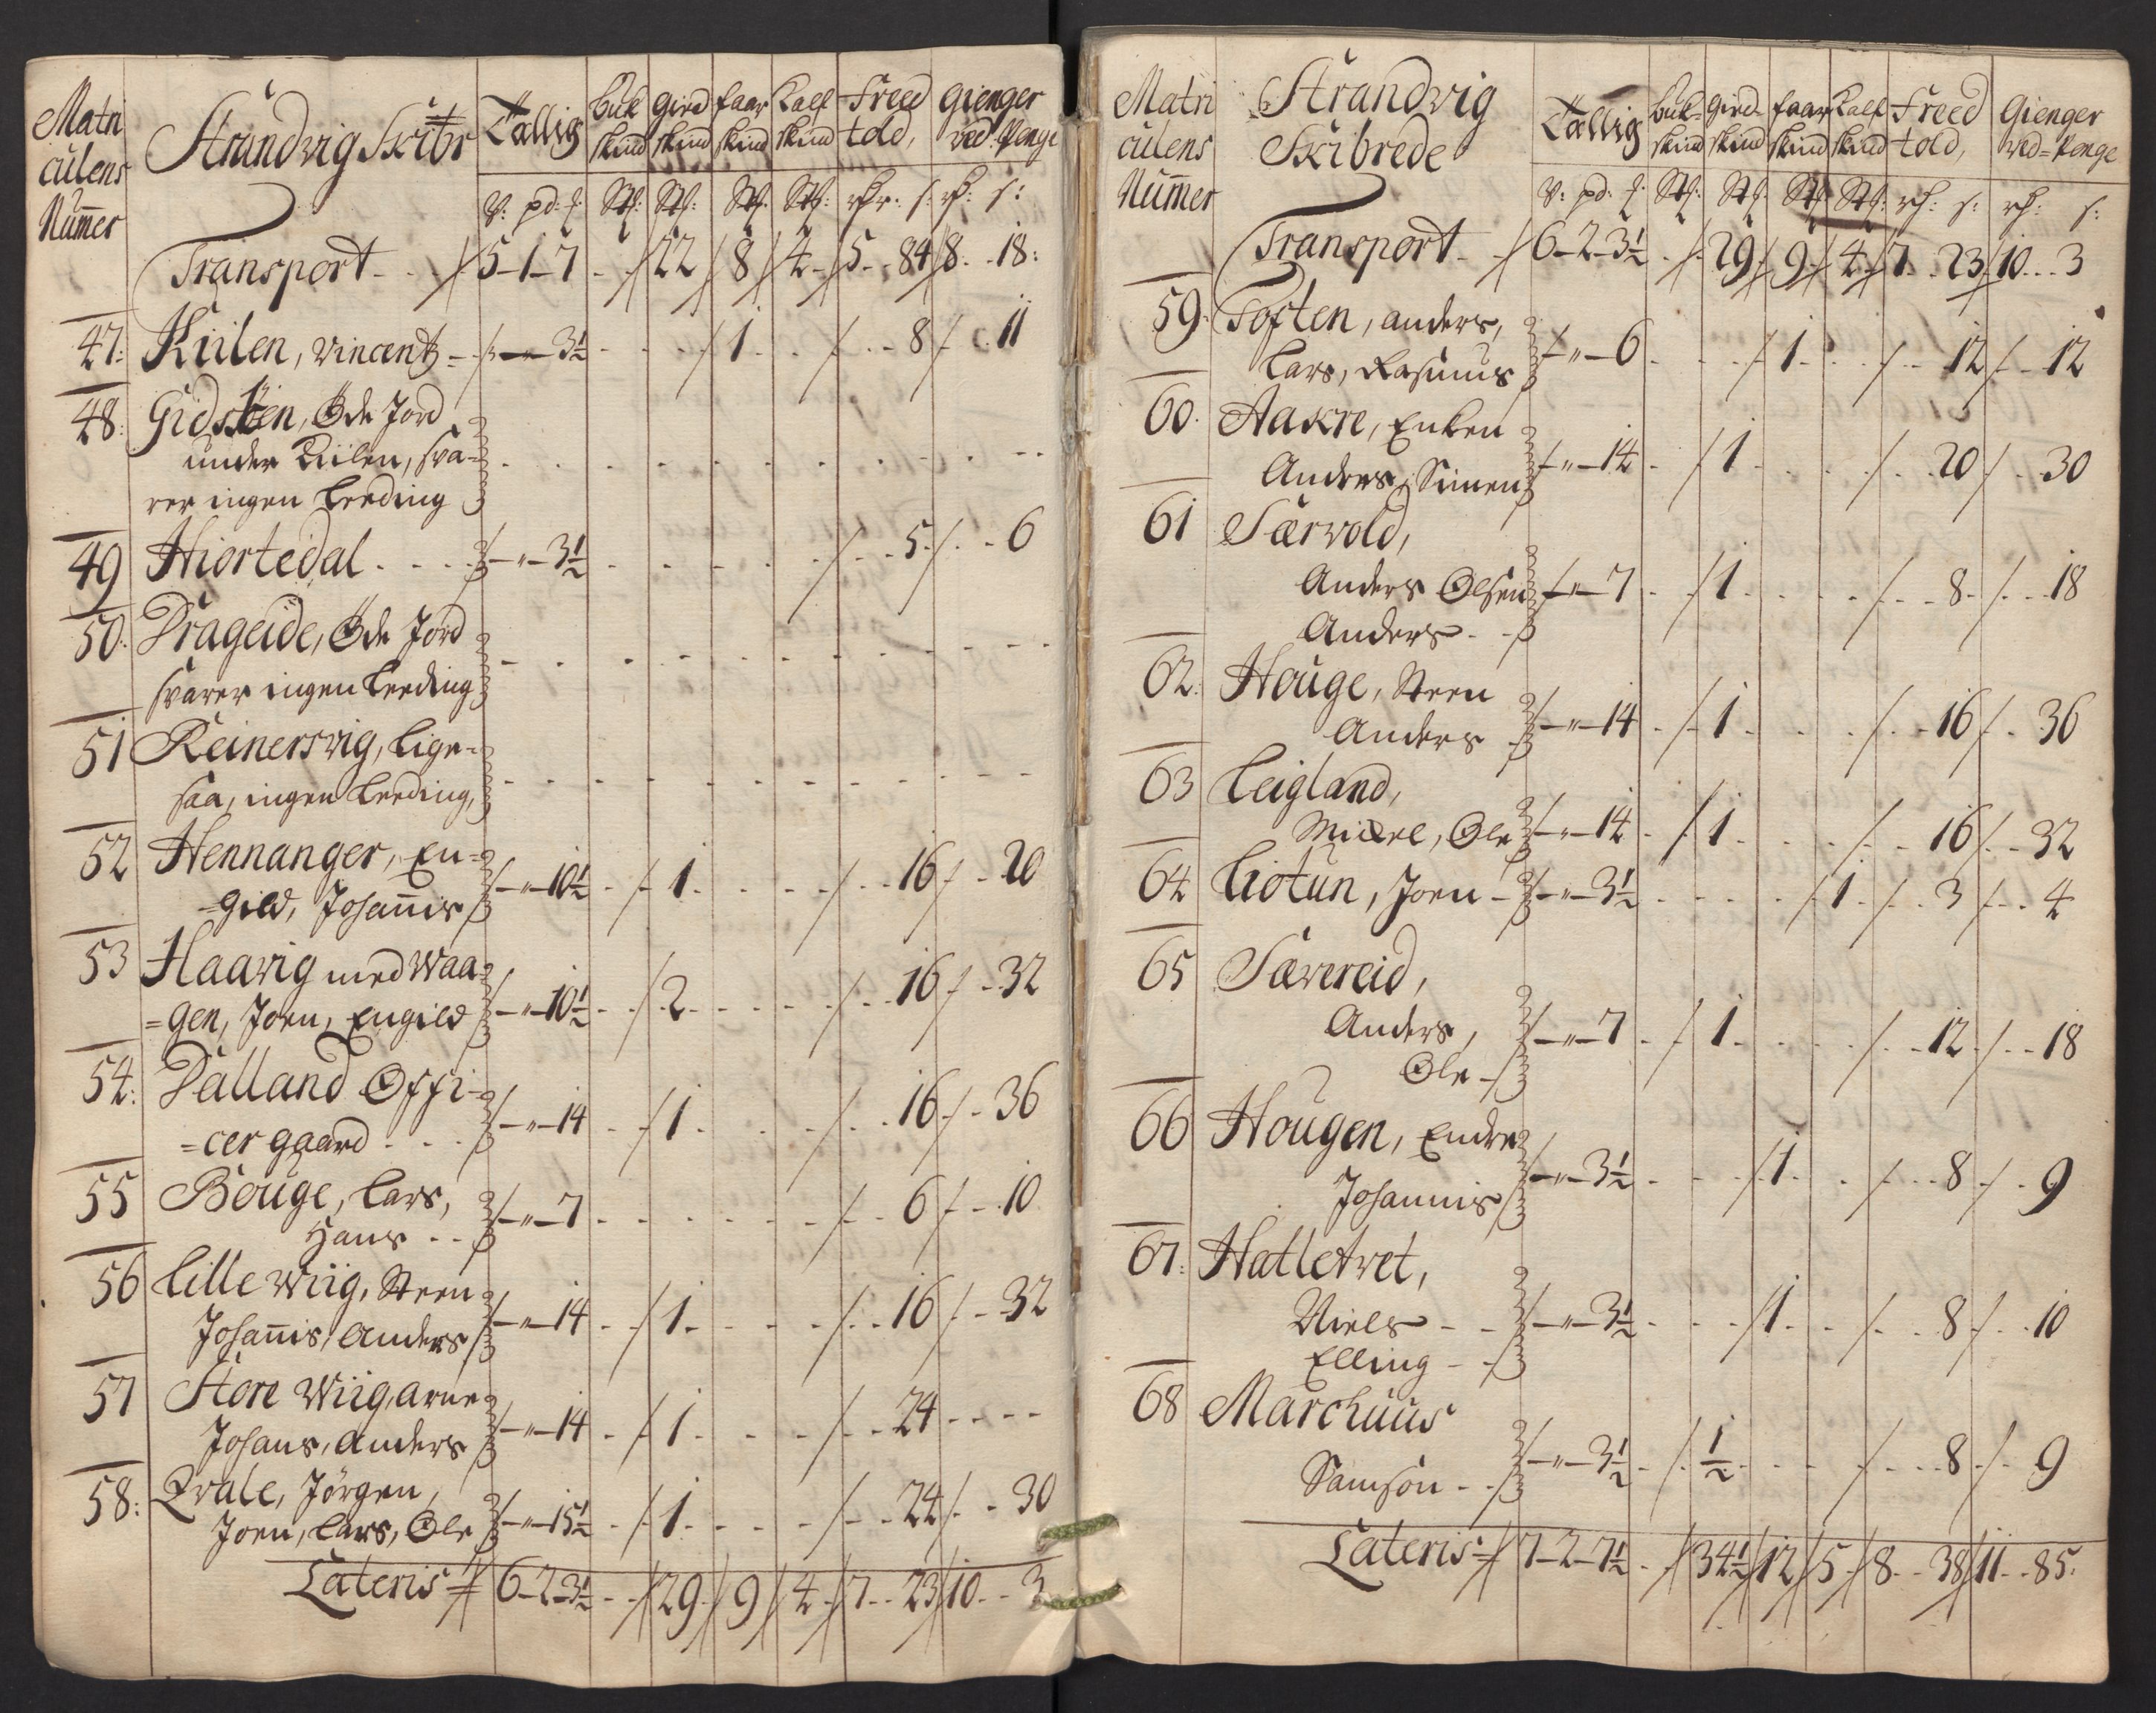 Matri
culens
Num̄er
Strandvig Skibr
Tallig
Buk
skind
Gied
skind
faar
skind
Kalf
skind
Freed
told,
Gienger
ved Penge
V: pd: f: Stk: Stk: Stk: Stk: rdr: s: rd: s:
Transport - 5-1-7 - 22 8 4 5 - 84 8 - 18:
47: Kiilen, Vincent - - " - 3½ - 1 - 8 - 11
48: Gidsøen, Øde Jord
under Kiilen, sva-
rer ingen Leeding
49 Hiortedal - - " - 3½ - 5 - 6
50: Drageide, Øde Jord
svarer ingen Leeding
51 Reinersvig, lige-
saa, ingen Leeding,
52 Hennanger, En-
=gild, Johan̄is - " - 10½ - 1 - 16 - 20
53 Haavig med Waa-
=gen, Joen, Engild - " - 10½ - 2 - 16 - 32
54: Dalland Offi-
=cer gaard - - " - 14 - 1 - 16 - 36
55 Bouge, Lars,
Hans - - " - 7 - 6 - 10
56 Lille Wiig, Steen
Johan̄is, Anders - " - 14 - 1 - 16 - 32
57 Store Wiig, Arne
Johans, Anders - " - 14 - 1 - 24 - - -
58: Qvale, Jörgen,
Joen, Lars, Ole - " - 15½ - 1 - 24 - 30
Lateris 6-2-3½ - 29 9 4 7 - 23 10 - 3
Matri
culens
Num̄er
Strandvig
Skibrede
Tallig
Buk-
skind
Gied-
skind
faar
skind
Kalf
skind
Freed
told,
Gienger
ved-Penge
V: pd: f: Stk: Stk: Stk: Stk: rd: s: rd: s:
Transport - 6-2-3½ - 29 9 4 7 - 23 10 - 3
59: Toften, anders,
Lars, Rasmus - " - 6 - 1 - 12 - 12
60. Aakre, Enken
Anders, Simen - " - 14 - 1 - 20 - 30
61 Særvold,
Anders Olsen - " - 7 - 1 - 8 - 18
Anders - -
62: Houge, Steen
Anders - " - 14 - 1 - 16 - 36
63 Leigland,
Mickel, Ole - " - 14 - 1 - 16 - 32
64 Liotun, Joen - - " - 3½ - 1 - 3 - 4
65 Sævereid,
Anders, - " - 7 - 1 - 12 - 18
Ole -
66 Hougen, Endre
Johannis - " - 3½ - 1 - 8 - 9
67: Hatletvet,
Niels - - - " - 3½ - 1 - 8 - 10
Elling - -
68 Marchuus
Samson - - - " - 3½ - ½ - 8 - 9
Lateris 7-2-7½ - 34½ 12 5 8 - 38 11 - 85: